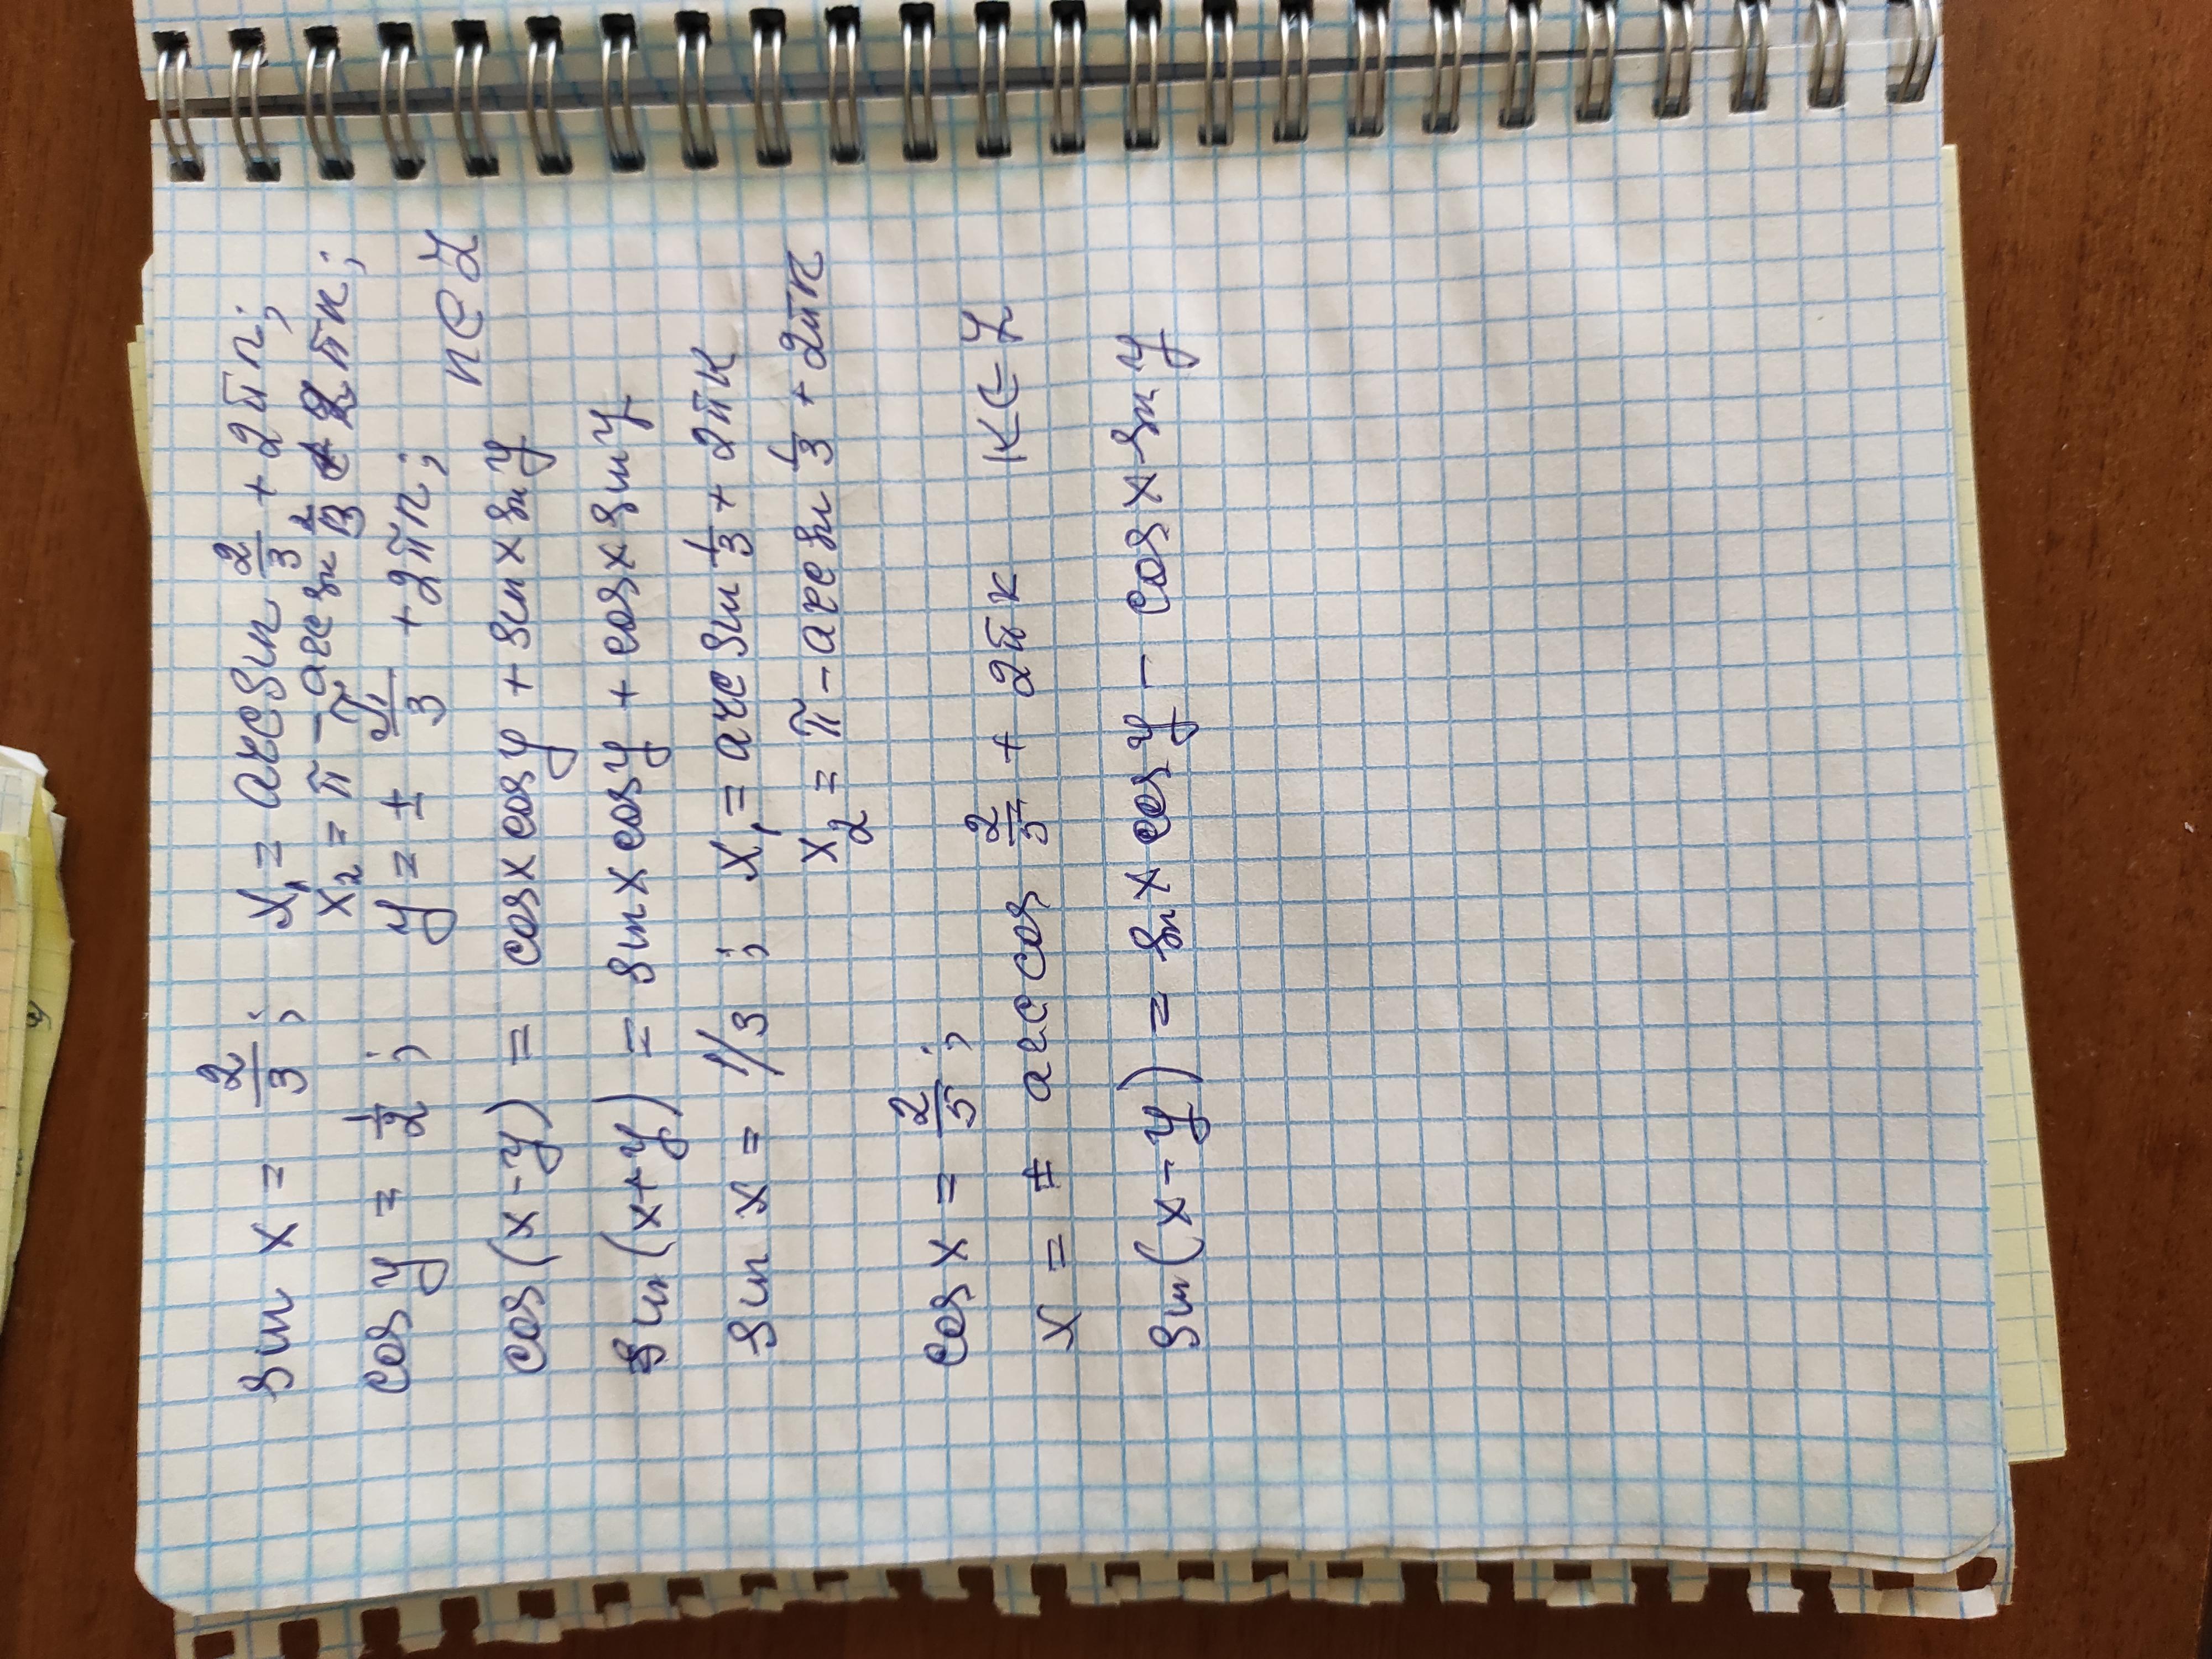 sin x = 2/3; x₁ = arcsin 2/3 + 2πn;
x₂ = π - arcsin 2/3 + 2πk;
cos y = 1/2; y = ± π/3 + 2πn;
n ∈ Z
cos(x-y) = cosx cosy + sinx siny
sin(x+y) = sinx cosy + cosx siny
sin x = 1/3; x₁ = arcsin 1/3 + 2πk
x₂ = π - arcsin 1/3 + 2πk
cos x = 2/5;
x = ± arccos 2/5 + 2πk k ∈ Z
sin(x-y) = sinx cosy - cosx siny